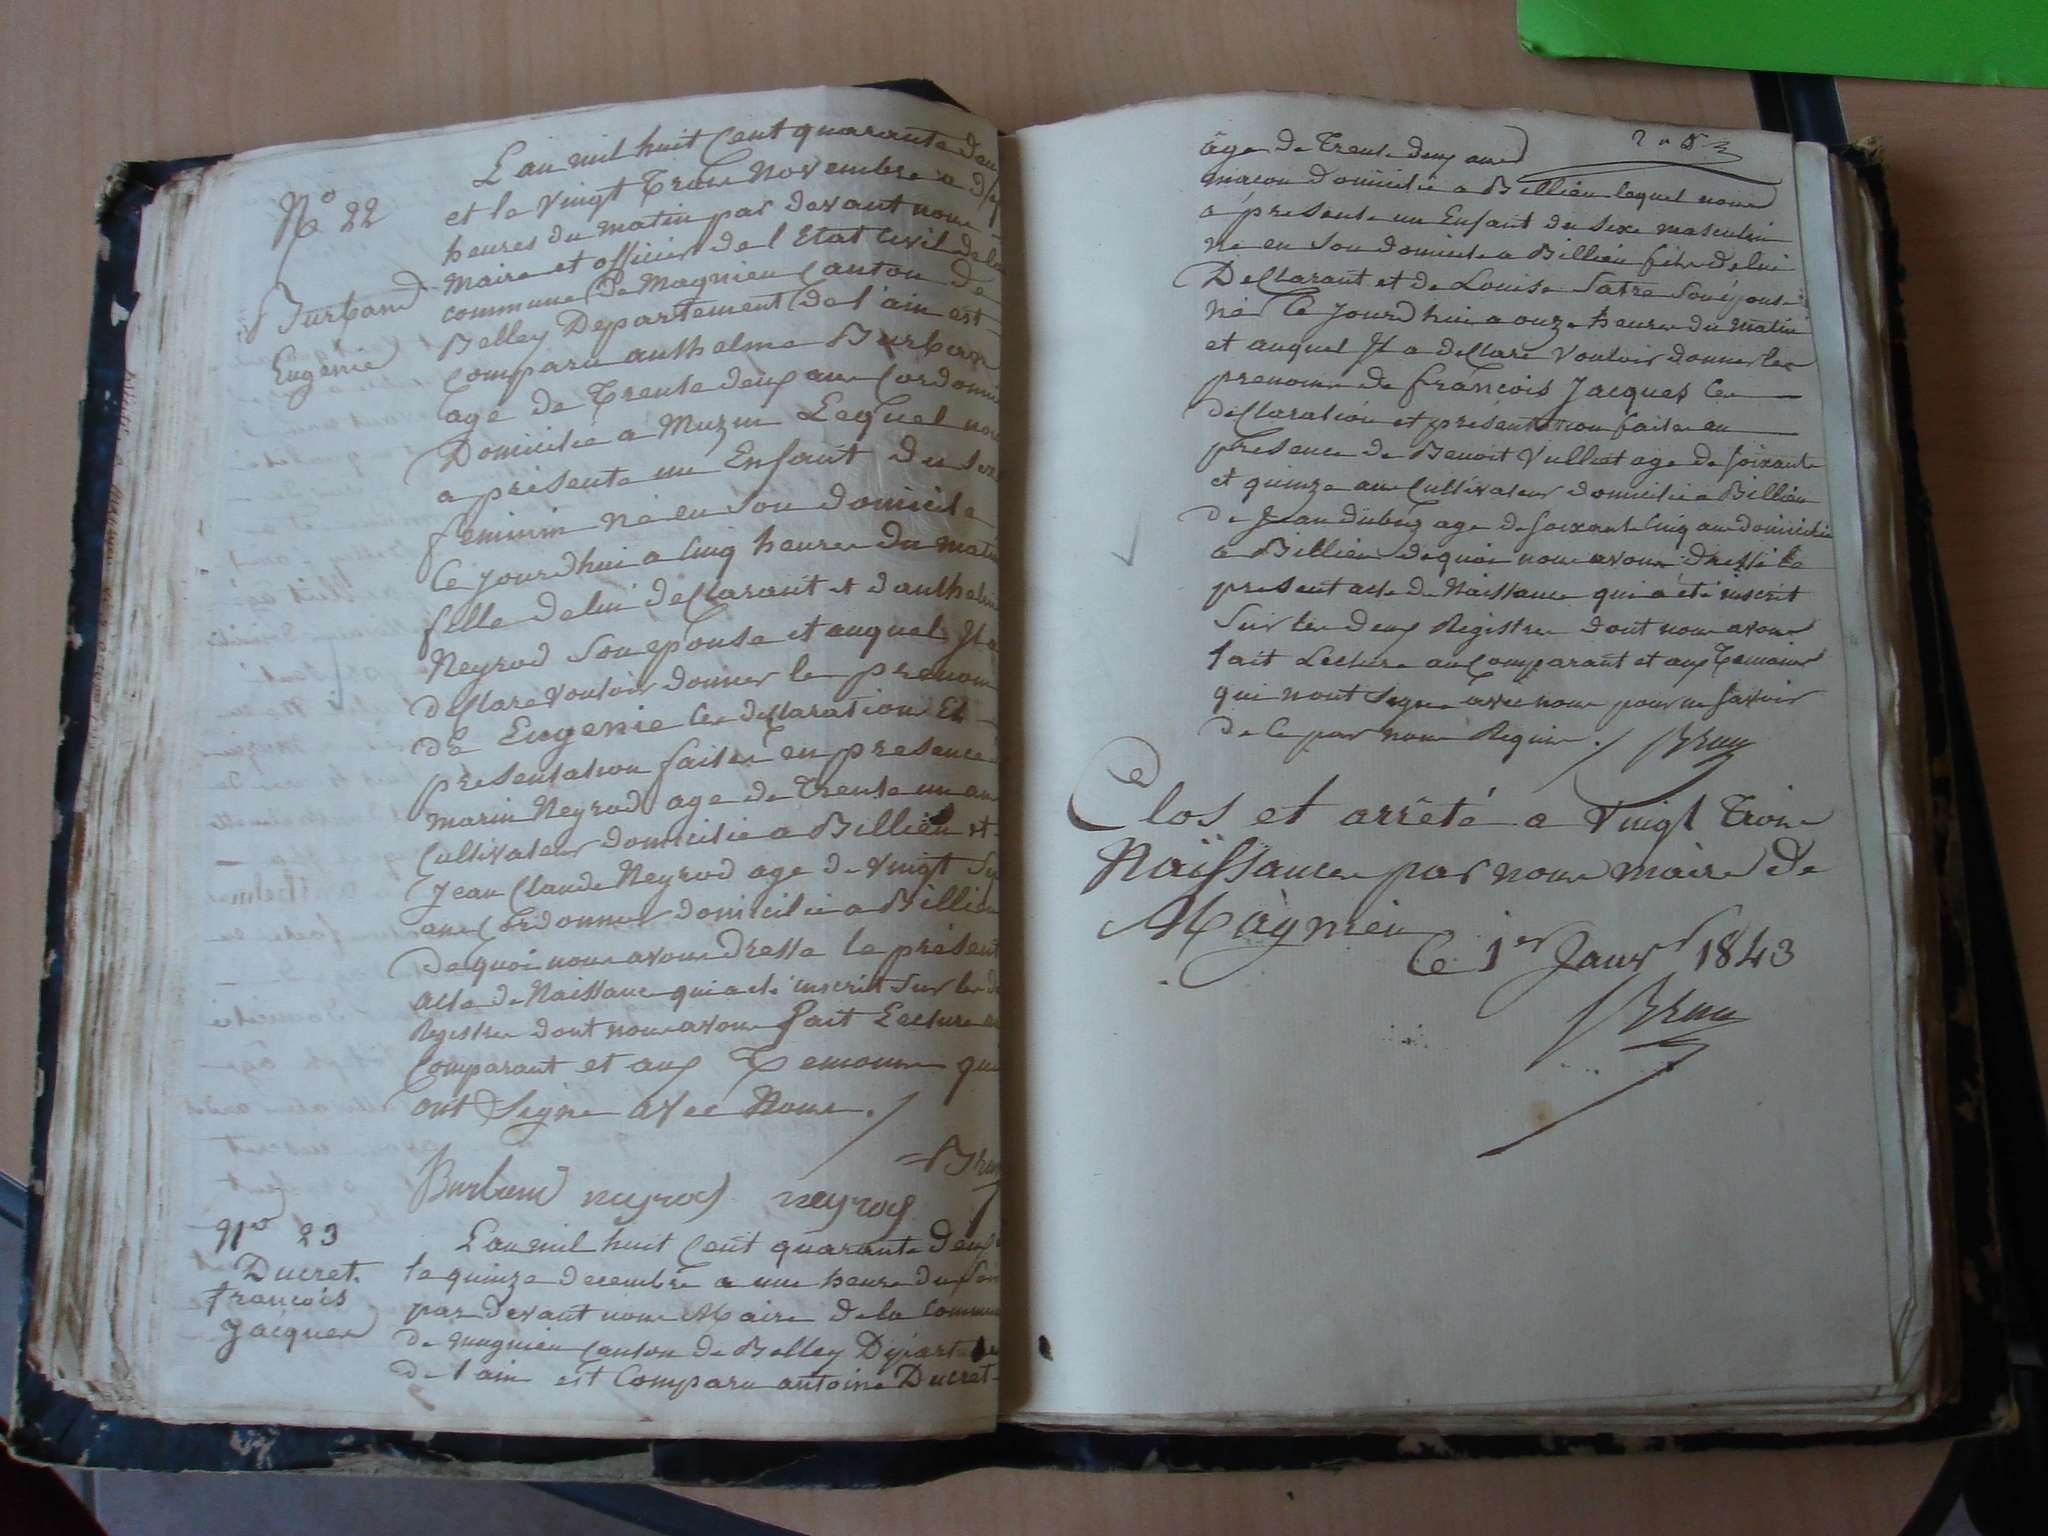 L'an mil huit Cent quarante deu
et le vingt Trois Novembre a
heures du matin par devant nous
maire et officier de l'Etat Civil de la
commune de Magnieu Canton de
Belley Departement de l'ain est
comparu anthelme Burban
age de Trente deux ans Cordonni
Domicilié a Muzin Lequel nou
a présenté un Enfant du sexe
feminin né en son domicile
Ce jourdhui a Cinq heures du matin
fille de lui declarant et d'anthelm
Neyrod son epouse et auquel Il a
declare vouloir donner le prenom
de Eugenie Les declaration Et
presentation faites en presence
marin Neyrod age de Trente un ans
Cultivateur domicilie a Billieu et
Jean Claude Neyrod age de vingt
ans Cordonnier domicilié a Billieu
de quoi nous avons dressé le présent
acte de Naissance qui a eté inscrit sur les d
Registres dont nous avons fait Lecture au
Comparant et aux Temoins qui
ont Signe avec Nous.
Bru
Burband neyrod neyrod
No 22
Burband
Eugénie
No 23
Ducret
françois
Jacques
L'an mil huit Cent quarante deux
le quinze decembre a une heure du soir
par devant nous Maire de la Commu
de magnieu Canton de Belley Départ
de l'ain est Comparu antoine Ducret
âge de Trente deux ans
macon domicilié a Billieu lequel nous
a présenté un Enfant du sexe masculin
né en son domicile a Billieu fils de lui
Declarant et de Louise Satre son épouse
né Ce jourd'hui a onze heures du matin
et auquel Il a declare vouloir donner les
prenoms de françois Jacques Les
declaration et présentation faites en
présence de Benoit Vulliet age de soixante
et quinze ans Cultivateur domicilié a Billieu
de Jean age de soixante Cinq ans domicilié
a Billieu de quoi nous avons dressé le
present acte de Naissance qui a été inscrit
sur les deux Registres dont nous avons
fait Lecture au Comparant et aux Temoins
qui n'ont Signe avec nous pour ne savoir
de Ce par nous Requis.
Clos et arrêté a Vingt Trois
Naissances par nous maire de
Magnieu
Le 1er Janvr 1843